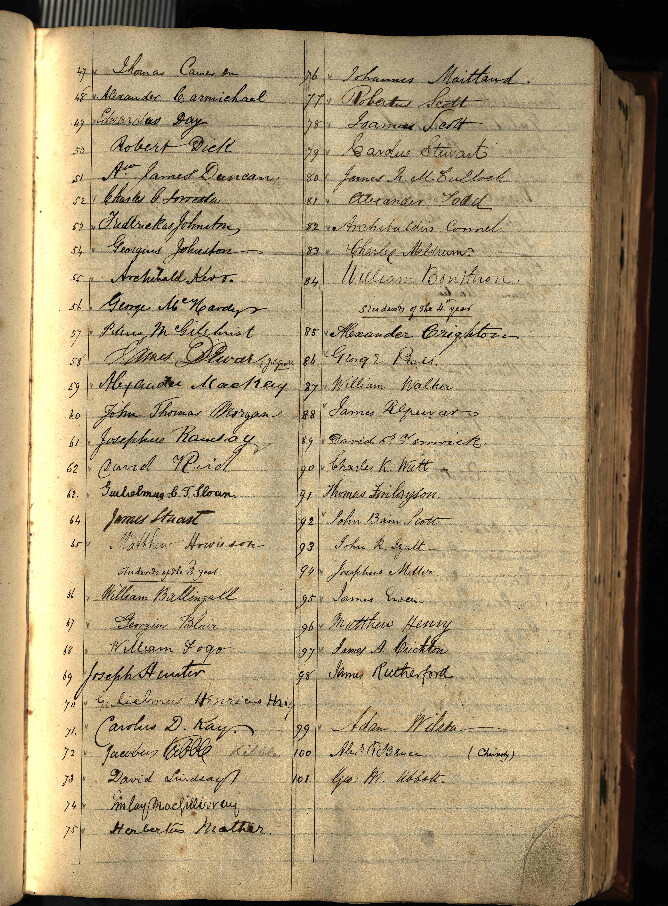 47 Thomas Cameron
48 Alexander Carmichael
49 Edvardus Day
50 Robert Dick
51 Aw James Duncan
52 Charles C.
53 Fredrickas Johnston
54 Georgius Johnston
55 Archibald Kerr.
56 George McHardy
57 Peter McGilchrist
58 James Dewar
59 Alexander MacKay
60 John Thomas Morgan
61 Josephus Ramsay
62 David Reid
63. Gulielmus C. T. Sloan
64 James Stuart
65 Matthew Howieson
Students of the 3d year
66 William Ballingall
67 Georgius Blair
68 William Fogo
69 Joseph Hunter
70 Gulielmus Henricus Hay
71. Carolus D. Kay.
72 Jacobus Kibble Kibble
73 David Lindsay
74 Finlay MacGillivray
75 Herbertus Mather.
76 Johannes Maitland.
77 Robertus Scott
78 Joannes Scott
79 Carolus Stewart
80 James R. McCulloch
81 Alexander Todd
82 Archibaldus Connel
83 Charles Meldrum.
84 William Bonthron.
Students of the 4th year
85 Alexander Crighton
86 George
87 William Walker
88 James
89 David Fenwick.
90 Charles K. Watt
91 Thomas Finlayson.
92 John Bain Scott
93 John R.
94 Josephus Miller
95 James Ewen
96 Matthew Henry
97 James A. Crichton
98 James Rutherford
99 Adam Wilson
100 Alexr. R. Bruce (Chemistry)
101 Geo. M. Abbott.